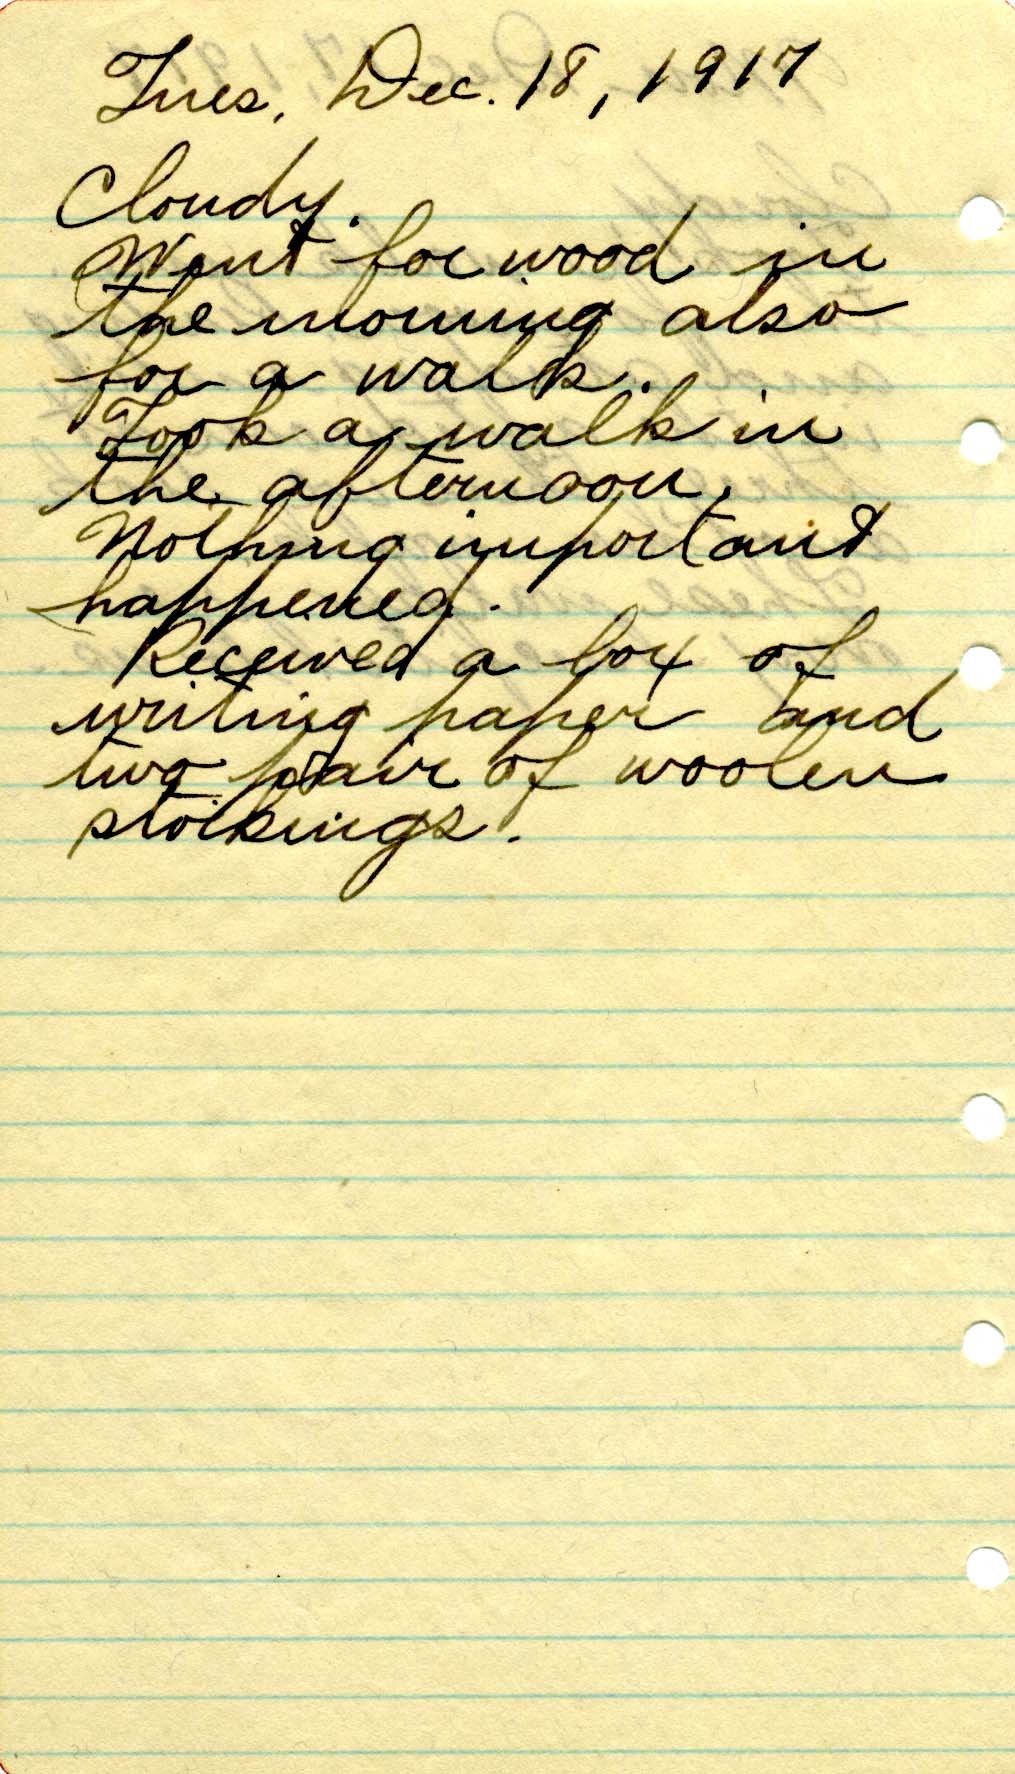 Tues, Dec. 18, 1917
Cloudy.
Went for wood in
the morning also
for a walk.
Took a walk in
the afternoon.
Nothing important
happened.
Received a box of
writing paper and
two pair of woolen
stockings.